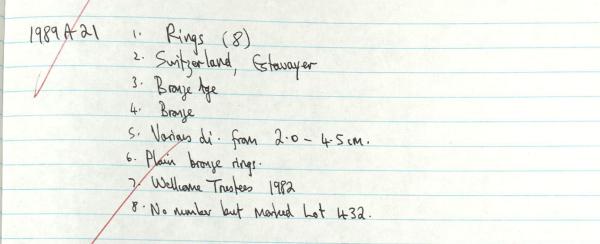 1989 A 21 1. Rings (8)
2. Switzerland, Estavayer
3. Bronze Age
4. Bronze
5. Various di. from 2.0 - 4.5 cm.
6. Plain bronze rings.
7. Wellcome Trustees 1982
8. No number but Marked Lot 432.